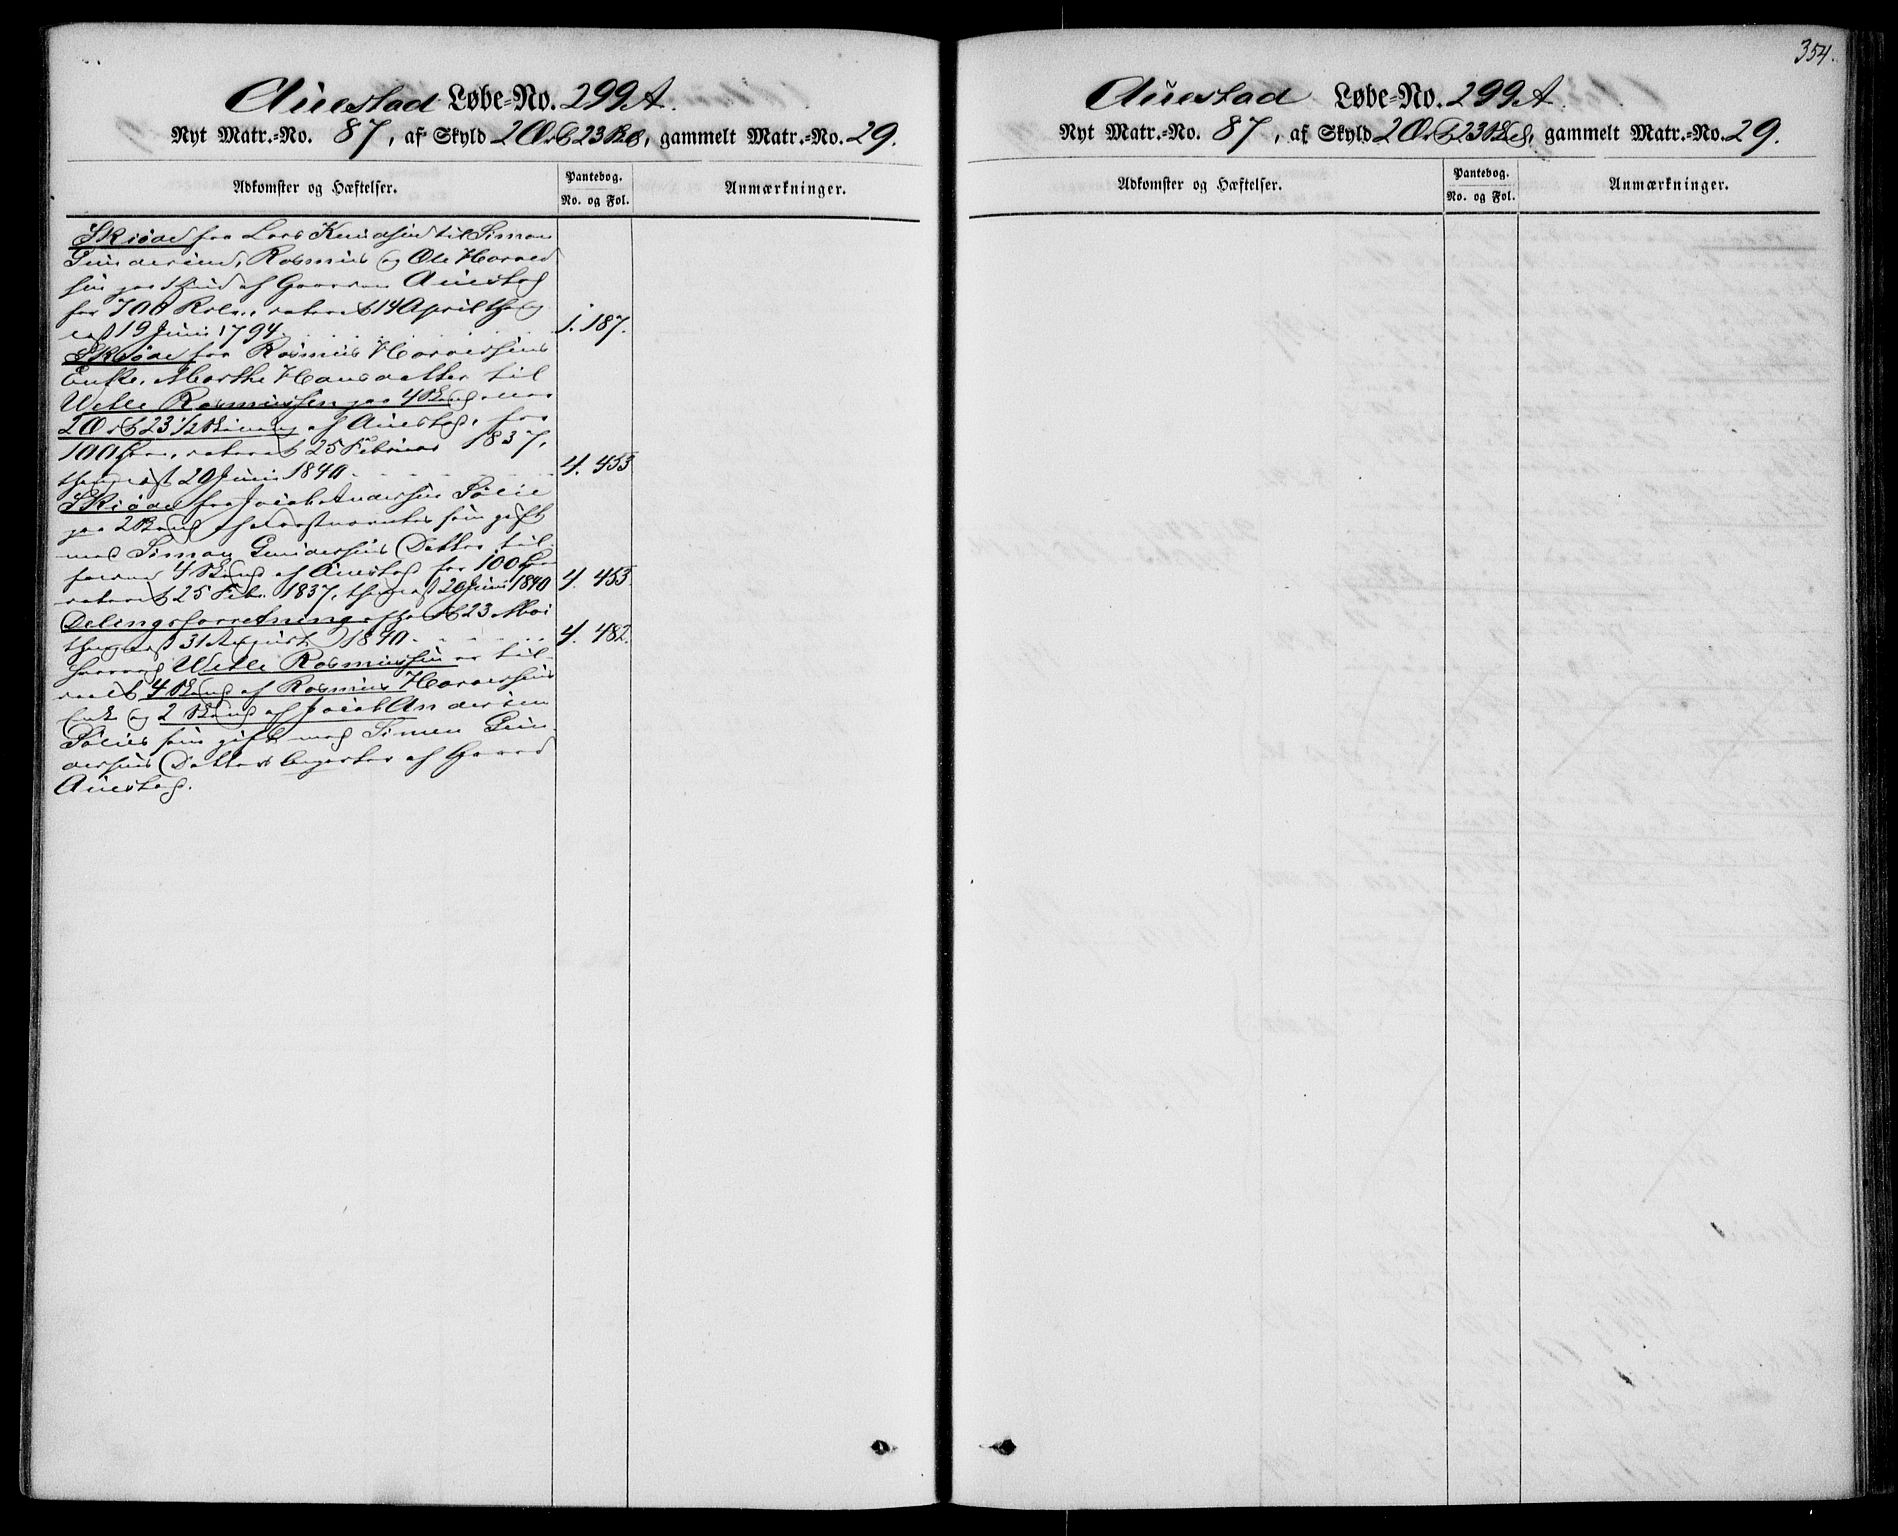 Auestad Løbe-No. 299A.
Nyt Matr.-No. 87, af Skyld 2 Ort 23 Sk, gammelt Matr.-No. 29.
Adkomster og Hæftelser.
Pantebog.
No. og Fol.
Anmærkninger.
Skiøde fra Lars Knudsen til Simon
Gundersen, Rasmus og Ole Haaver
sen paa af Gaarden Auestad
for 700 Rdlr., dateret 14 April thing
læst 19 Juni 1794. 1. 187.
Skiøde fra Rasmus Haaversens
Enke, Marthe Hansdatter til
Vetle Rasmussen paa 4 Skind
2 Ort 23 1/2 Skilling af Auestad, for
100 dateret 25 Februar 1837,
thinglæst 20 Juni 1840. 4. 453
Skiøde fra Jacob Andersen Sølie
paa 2 Skind som gift
med Simon Gundersens Datter, til
4 Skind af Auestad for 100
dateret 25 Febr. 1837, thinglæst 20 Juni 1840 4. 453.
Delingsforretning afholdt 23 Mai
thinglæst 31 August 1840. 4. 482.
hvorved Vetle Rasmussen er til
deelt 4 Skind af Rasmus Haaversens
Enke og 2 Skind af Jacob Andersen
Sølies som gift med Simen Gun
dersens Datters af Gaard
Auestad.
354.
Auestad Løbe-No. 299A
Nyt Matr.-No. 87, af Skyld 2 Ort 23 Sk, gammelt Matr.-No. 29.
Adkomster og Hæftelser.
Pantebog.
No. og Fol.
Anmærkninger.